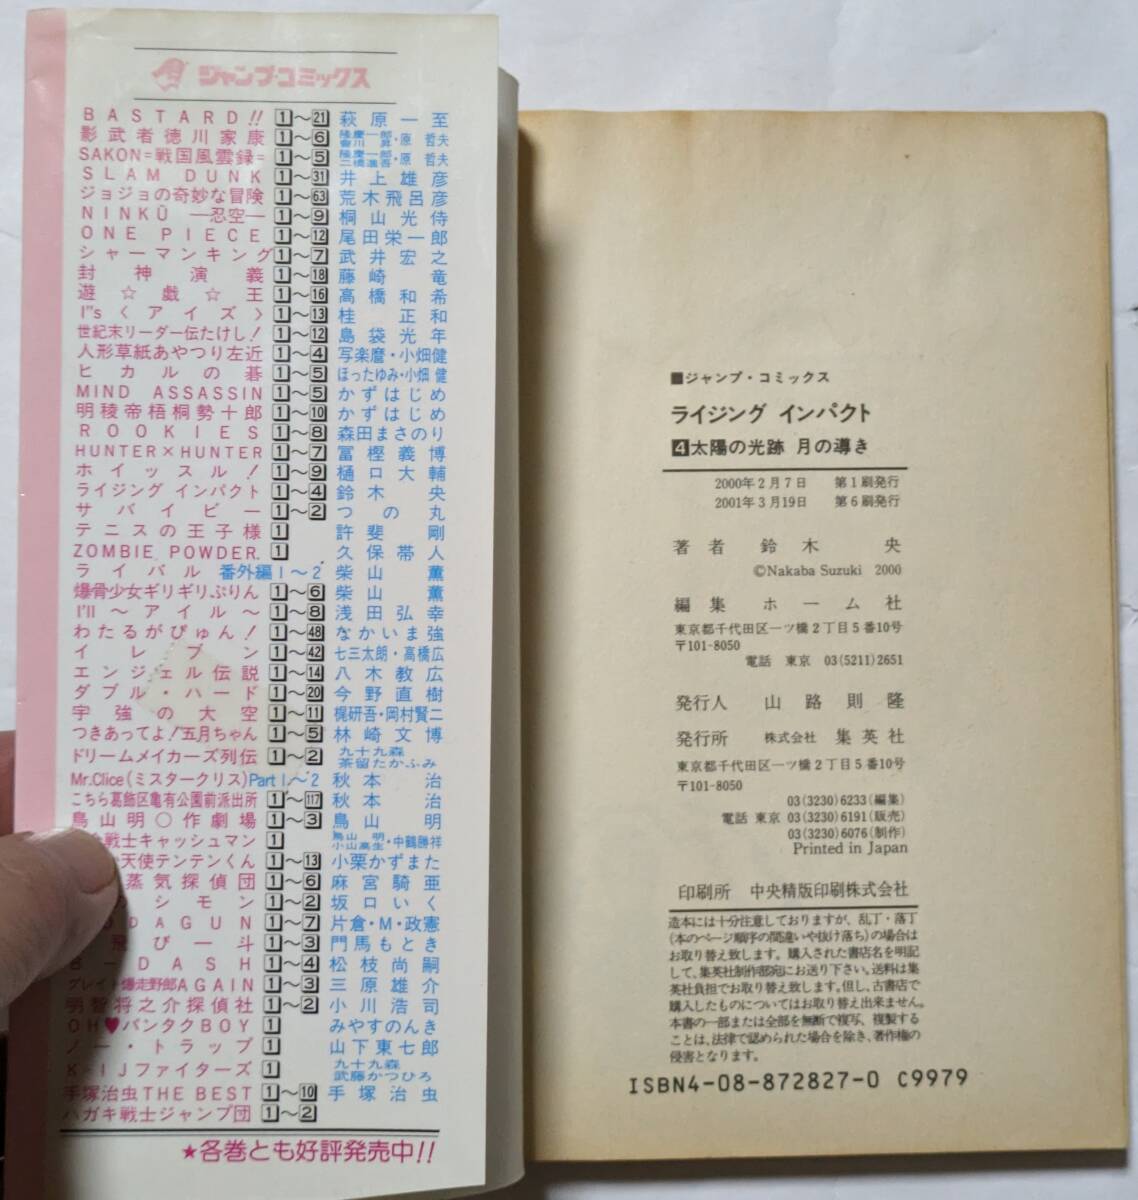 ジャンプ・コミックス
BASTARD!! 1〜21 萩原一至
影武者徳川家康 1〜6 隆慶一郎 會川昇・原哲夫
SAKON=戦国風雲録= 1〜5 隆慶一郎 二橋進吾・原哲夫
SLAM DUNK 1〜31 井上雄彦
ジョジョの奇妙な冒険 1〜63 荒木飛呂彦
NINKŪ ―忍空― 1〜9 桐山光侍
ONE PIECE 1〜12 尾田栄一郎
シャーマンキング 1〜7 武井宏之
封神演義 1〜18 藤崎竜
遊☆戯☆王 1〜16 高橋和希
I"s〈アイズ〉 1〜13 桂正和
世紀末リーダー伝たけし! 1〜12 島袋光年
人形草紙あやつり左近 1〜4 写楽麿・小畑健
ヒカルの碁 1〜5 ほったゆみ・小畑健
MIND ASSASSIN 1〜5 かずはじめ
明稜帝梧桐勢十郎 1〜10 かずはじめ
ROOKIES 1〜8 森田まさのり
HUNTER×HUNTER 1〜7 冨樫義博
ホイッスル! 1〜9 樋口大輔
ライジング インパクト 1〜4 鈴木央
サバイビー 1〜2 つの丸
テニスの王子様 1 許斐剛
ZOMBIE POWDER. 1 久保帯人
ライバル 番外編1〜2 柴山薫
爆骨少女ギリギリぷりん 1〜6 柴山薫
I'll 〜アイル〜 1〜8 浅田弘幸
わたるがぴゅん! 1〜48 なかいま強
イレブン 1〜42 七三太朗・高橋広
エンジェル伝説 1〜14 八木教広
ダブル・ハード 1〜20 今野直樹
宇強の大空 1〜11 梶研吾・岡村賢二
つきあってよ!五月ちゃん 1〜5 林崎文博
ドリームメイカーズ列伝 1〜2 九十九森 茶留たかふみ
Mr.Clice(ミスタークリス) Part1〜2 秋本治
こちら葛飾区亀有公園前派出所 1〜117 秋本治
鳥山明○作劇場 1〜3 鳥山明
戦士キャッシュマン 1 鳥山明 小山高生・中鶴勝祥
天使テンテンくん 1〜13 小栗かずまた
蒸気探偵団 1〜6 麻宮騎亜
シモン 1〜2 坂口いく
DAGUN 1〜7 片倉・M・政憲
飛び一斗 1〜3 門馬もとき
B-DASH 1〜4 松枝尚嗣
グレイト爆走野郎AGAIN 1〜3 三原雄介
明智将之介探偵社 1〜2 小川浩司
OH♥バンタクBOY 1 みやすのんき
ノー・トラップ 1 山下東七郎
K-1Jファイターズ 1 九十九森 武藤かつひろ
手塚治虫THE BEST 1〜10 手塚治虫
ハガキ戦士ジャンプ団 1〜2
★各巻とも好評発売中!!
■ジャンプ・コミックス
ライジング インパクト
4 太陽の光跡 月の導き
2000年2月7日 第1刷発行
2001年3月19日 第6刷発行
著者 鈴木央
©Nakaba Suzuki 2000
編集 ホーム社
東京都千代田区一ツ橋2丁目5番10号
〒101-8050
電話 東京 03(5211)2651
発行人 山路則隆
発行所 株式会社 集英社
東京都千代田区一ツ橋2丁目5番10号
〒101-8050
03(3230)6233(編集)
電話 東京 03(3230)6191(販売)
03(3230)6076(制作)
Printed in Japan
印刷所 中央精版印刷株式会社
造本には十分注意しておりますが、乱丁・落丁
(本のページ順序の間違いや抜け落ち)の場合は
お取り替え致します。購入された書店名を明記
して、集英社制作部宛にお送り下さい。送料は集
英社負担でお取り替え致します。但し、古書店で
購入したものについてはお取り替え出来ません。
本書の一部または全部を無断で複写、複製する
ことは、法律で認められた場合を除き、著作権の
侵害となります。
ISBN4-08-872827-0 C9979